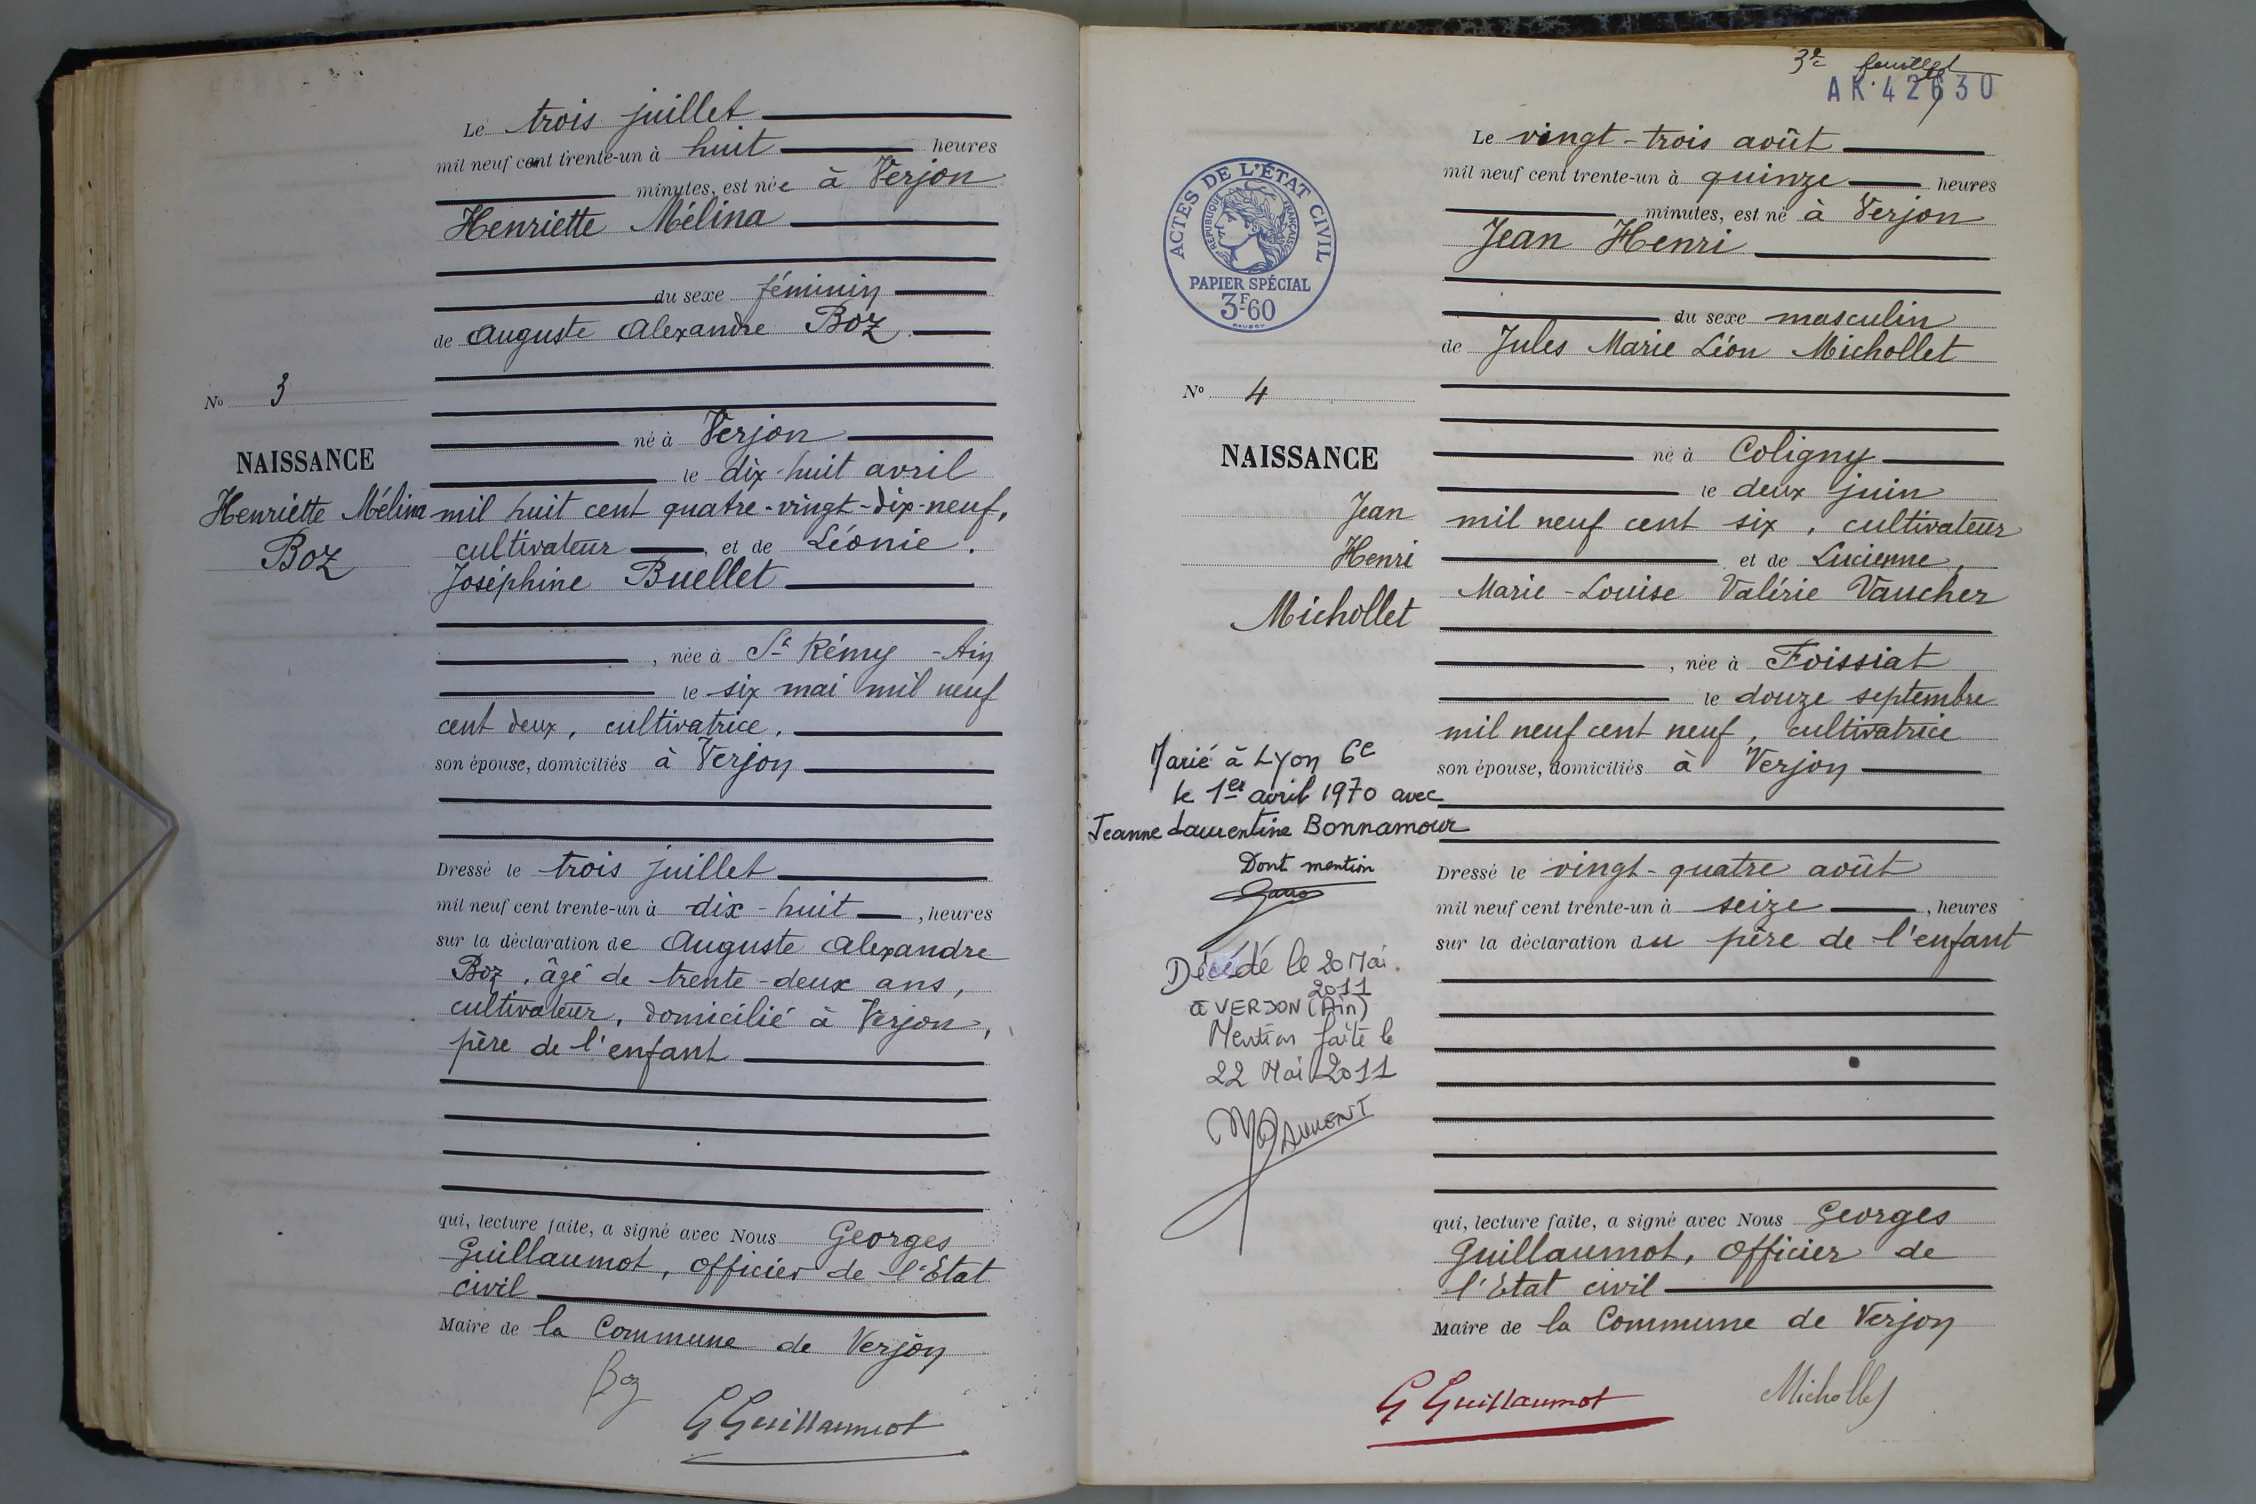 Le trois juillet
mil neuf cent trente-un à huit heures
minutes, est née à Verjon
Henriette Mélina
du sexe féminin
de Auguste Alexandre Boz
No 3
né à Verjon
NAISSANCE
le dix-huit avril
Henriette Mélina
Boz
mil huit cent quatre-vingt-dix-neuf,
cultivateur, et de Léonie.
Joséphine Buellet
, née à St Rémy - Ain
le six mai mil neuf
cent deux, cultivatrice,
son épouse, domiciliés à Verjon
Dressé le trois juillet
mil neuf cent trente-un à dix-huit, heures
sur la déclaration de Auguste Alexandre
Boz, âgé de trente-deux ans,
cultivateur, domicilié à Verjon,
père de l'enfant
qui, lecture faite, a signé avec Nous Georges
Guillaumot, Officier de l'Etat
civil
Maire de la Commune de Verjon
Boz
G Guillaumot
3e feuillet
AK.42630
Le vingt-trois août
mil neuf cent trente-un à quinze heures
minutes, est né à Verjon
Jean Henri
ACTES DE L'ÉTAT CIVIL
RÉPUBLIQUE FRANÇAISE
PAPIER SPÉCIAL
3F-60
du sexe masculin
de Jules Marie Léon Michollet
No 4
né à Coligny
NAISSANCE
le deux juin
Jean
Henri
Michollet
mil neuf cent six, cultivateur
et de Lucienne,
Marie-Louise Valérie Vaucher
, née à Foissiat
le douze septembre
mil neuf cent neuf, cultivatrice
son épouse, domiciliés à Verjon
Marié à Lyon 6e
le 1er avril 1970 avec
Jeanne Laurentine Bonnamour
Dont mention
Décédé le 20 Mai
2011
à VERJON (Ain)
Mention faite le
22 Mai 2011
Dressé le vingt-quatre août
mil neuf cent trente-un à seize, heures
sur la déclaration du père de l'enfant
qui, lecture faite, a signé avec Nous Georges
Guillaumot, Officier de
l'Etat civil
Maire de la Commune de Verjon
G Guillaumot
Michollet